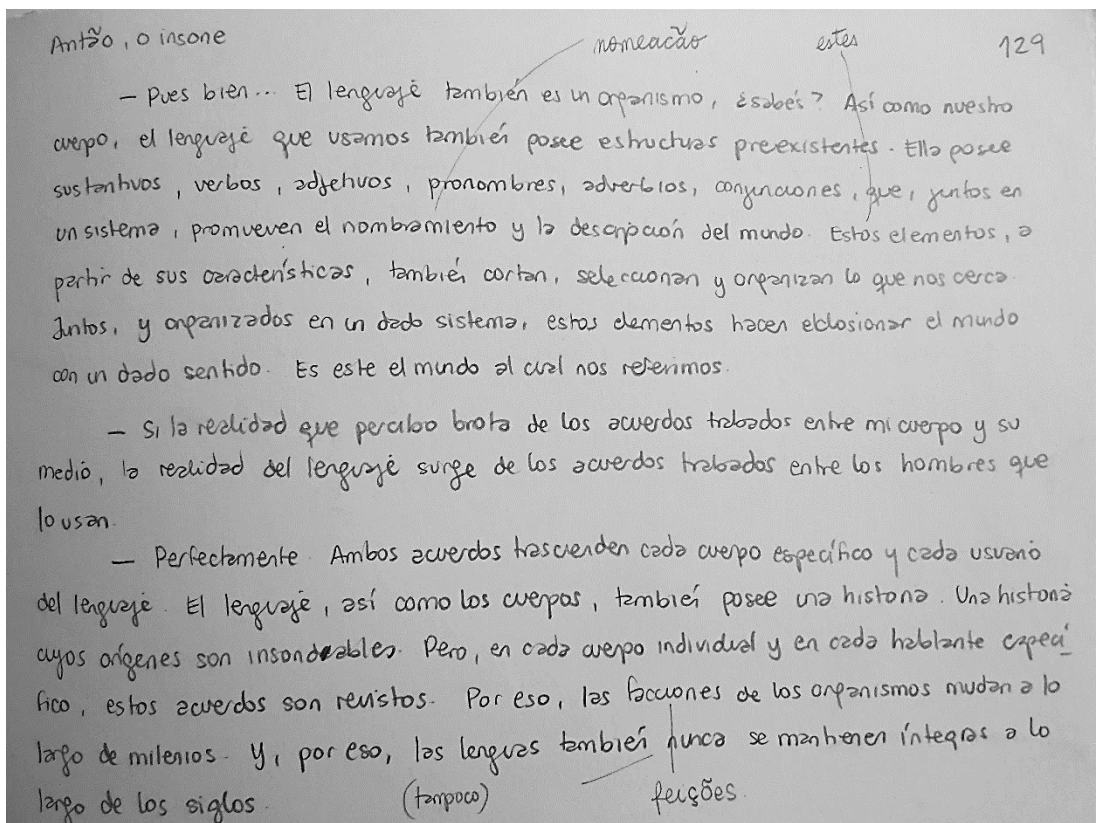 Antão, o insone
nomeacão estes 129
— Pues bien... El lenguaje también es un organismo, ¿sabés? Así como nuestro
cuerpo, el lenguaje que usamos también posee estructuras preexistentes. Ella posee
sustantivos, verbos, adjetivos, pronombres, adverbios, conjunciones, que, juntos en
un sistema, promueven el nombramiento y la descripción del mundo. Estos elementos, a
partir de sus características, también cortan, seleccionan y organizan lo que nos cerca.
Juntos, y organizados en un dado sistema, estos elementos hacen eclosionar el mundo
con un dado sentido. Es este el mundo al cual nos referimos.
— Si la realidad que percibo brota de los acuerdos trabados entre mi cuerpo y su
medio, la realidad del lenguaje surge de los acuerdos trabados entre los hombres que
lo usan.
— Perfectamente. Ambos acuerdos trascienden cada cuerpo específico y cada usuario
del lenguaje. El lenguaje, así como los cuerpos, también posee una historia. Una historia
cuyos orígenes son insondeables. Pero, en cada cuerpo individual y en cada hablante especí
fico, estos acuerdos son revistos. Por eso, las facciones de los organismos mudan a lo
largo de milenios. Y, por eso, las lenguas también nunca se mantienen íntegras a lo
largo de los siglos. (tampoco) feições.